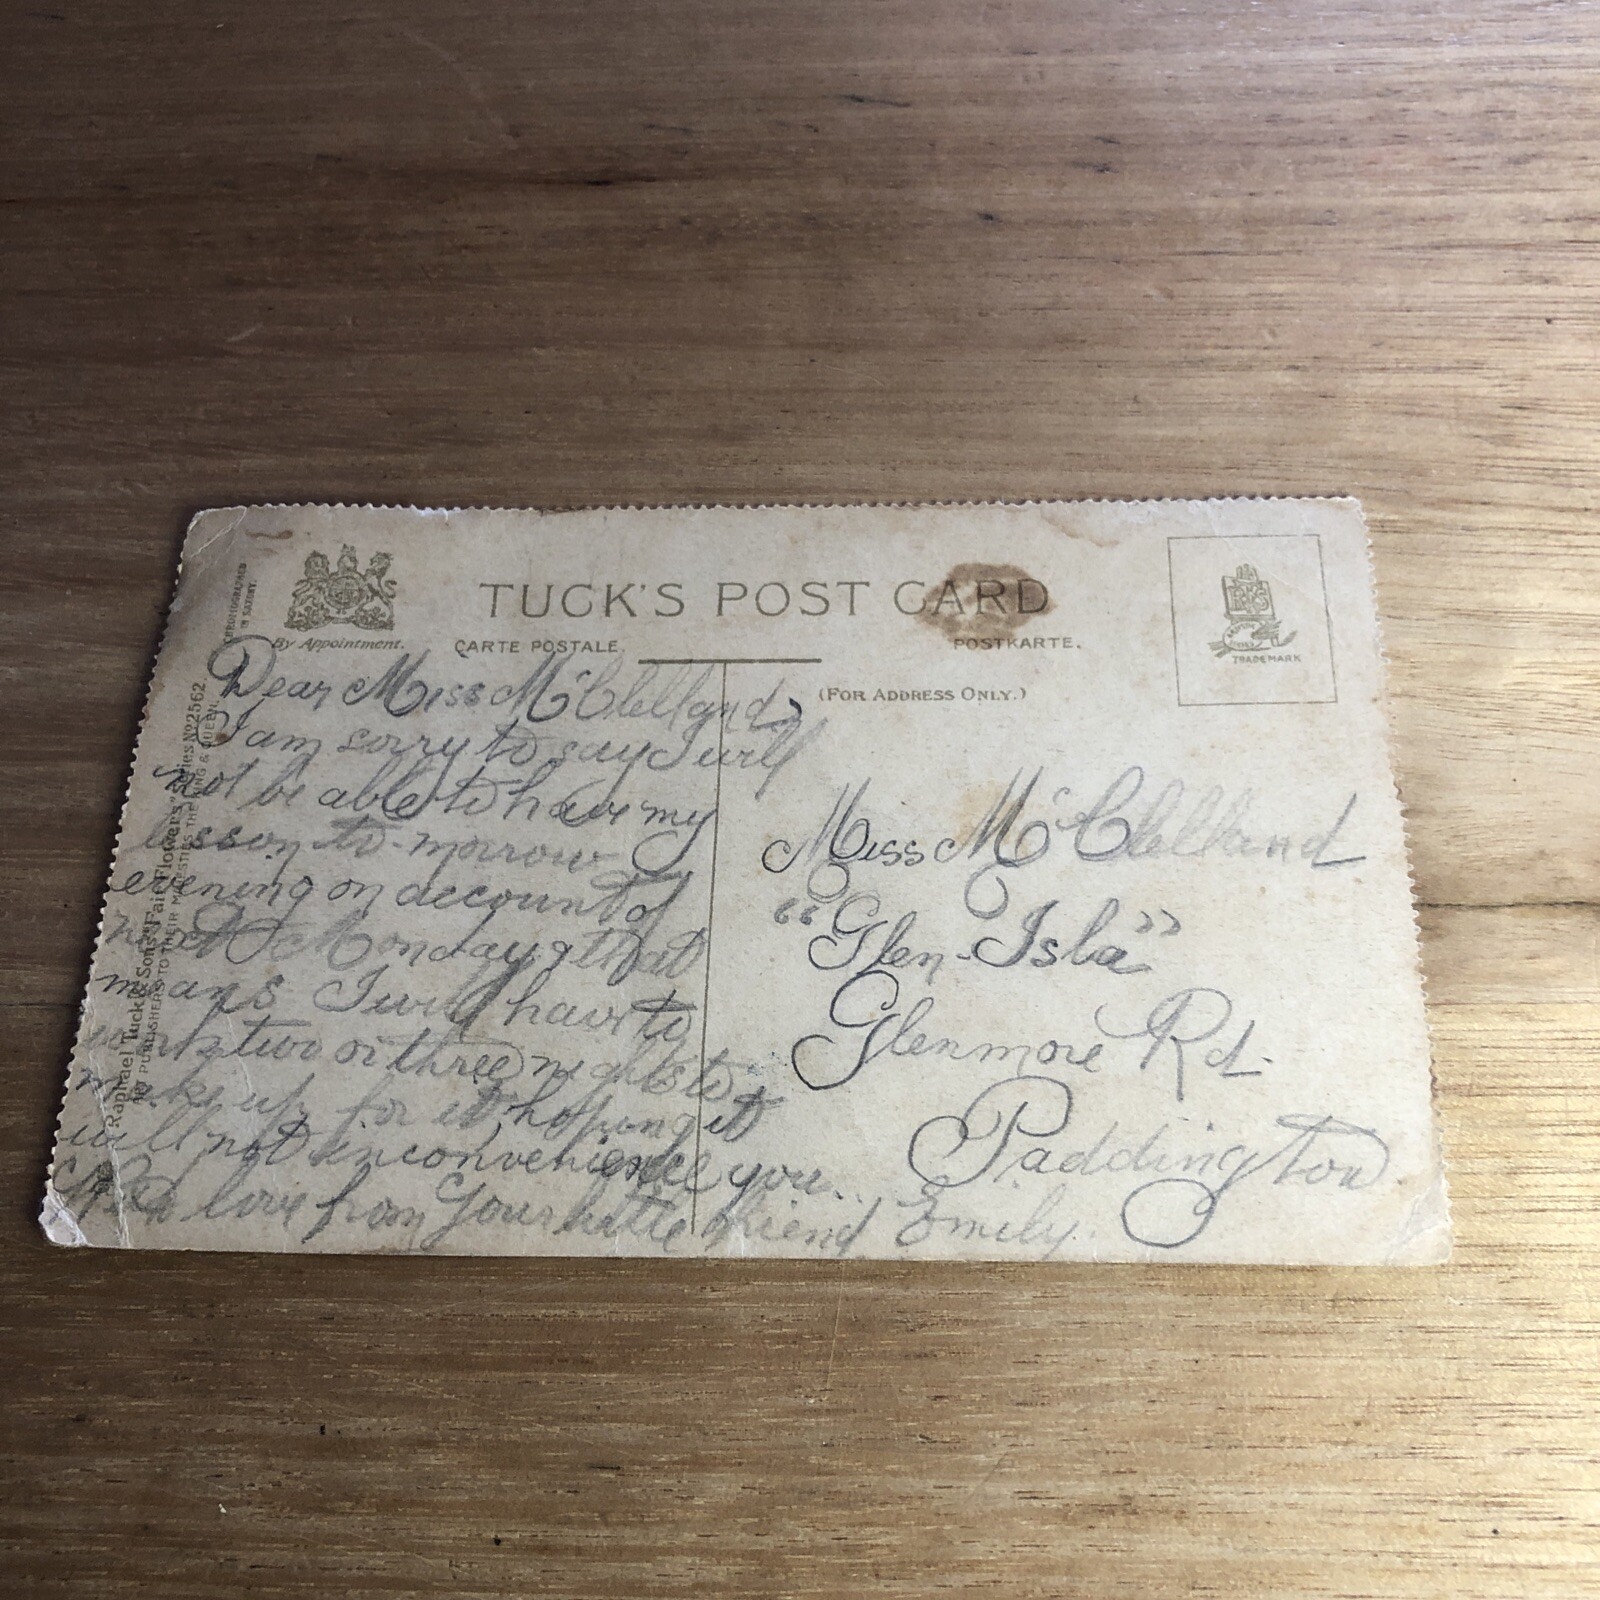 TUCK'S POST CARD
By Appointment.
CARTE POSTALE.
POSTKARTE.
CHROMOGRAPHED
IN SAXONY.
TRADE MARK
(FOR ADDRESS ONLY.)
Raphael Tuck & Sons' "Fair Flowers" Series No 2562.
ART PUBLISHERS TO THEIR MAJESTIES THE KING & QUEEN.
Dear Miss McClelland,
I am sorry to say I will
not be able to have my
lesson to-morrow
evening on account of
next Monday, that
means I will have to
work two or three nights to
make up for it hoping it
will not inconvenience you..
With love from Your little friend Emily.
Miss McClelland
"Glen-Isla"
Glenmore Rd.
Paddington